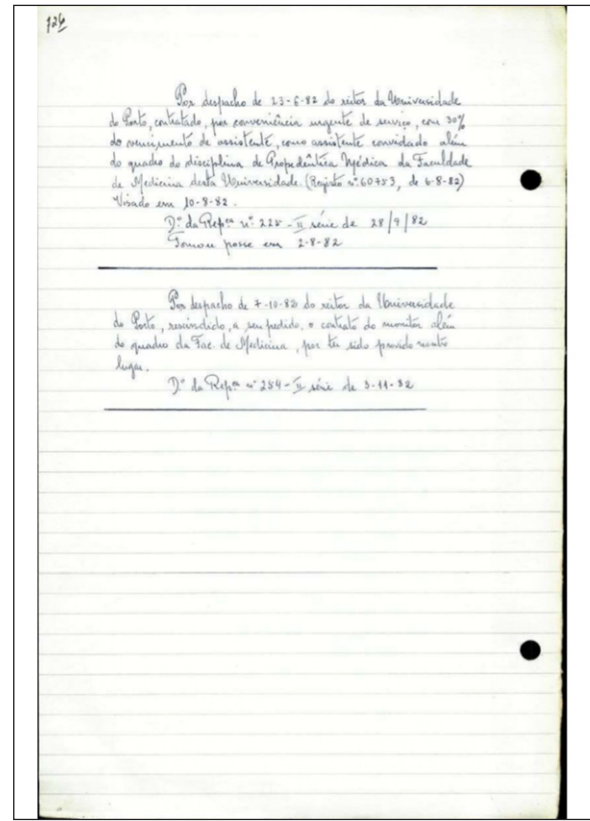 726
Por despacho de 23-6-82 do reitor da Universidade
do Porto, contratado, por conveniência urgente de serviço, com 30%
do vencimento de assistente, como assistente convidado além
do quadro da disciplina de Propedêutica Médica da Faculdade
de Medicina desta Universidade. (Registo nº 60753, de 6-8-82)
Visado em 10-8-82.
D.º da Rep.ca nº 225 - II série de 28/9/82
Tomou posse em 2-8-82
Por despacho de 7-10-82 do reitor da Universidade
do Porto, rescindido, a seu pedido, o contrato de monitor além
do quadro da Fac. de Medicina, por ter sido provido noutro
lugar.
D.º da Rep.ca nº 254 - II série de 3-11-82